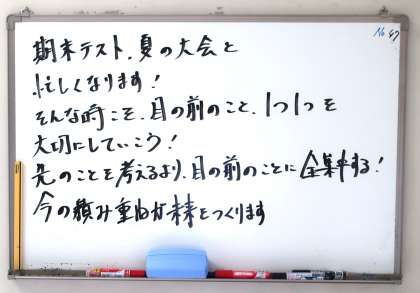 No.47
期末テスト、夏の大会と
忙しくなります！
そんな時こそ、目の前のこと、1つ1つを
大切にしていこう！
先のことを考えるより、目の前のことに全集中する！
今の積み重ねが未来をつくります